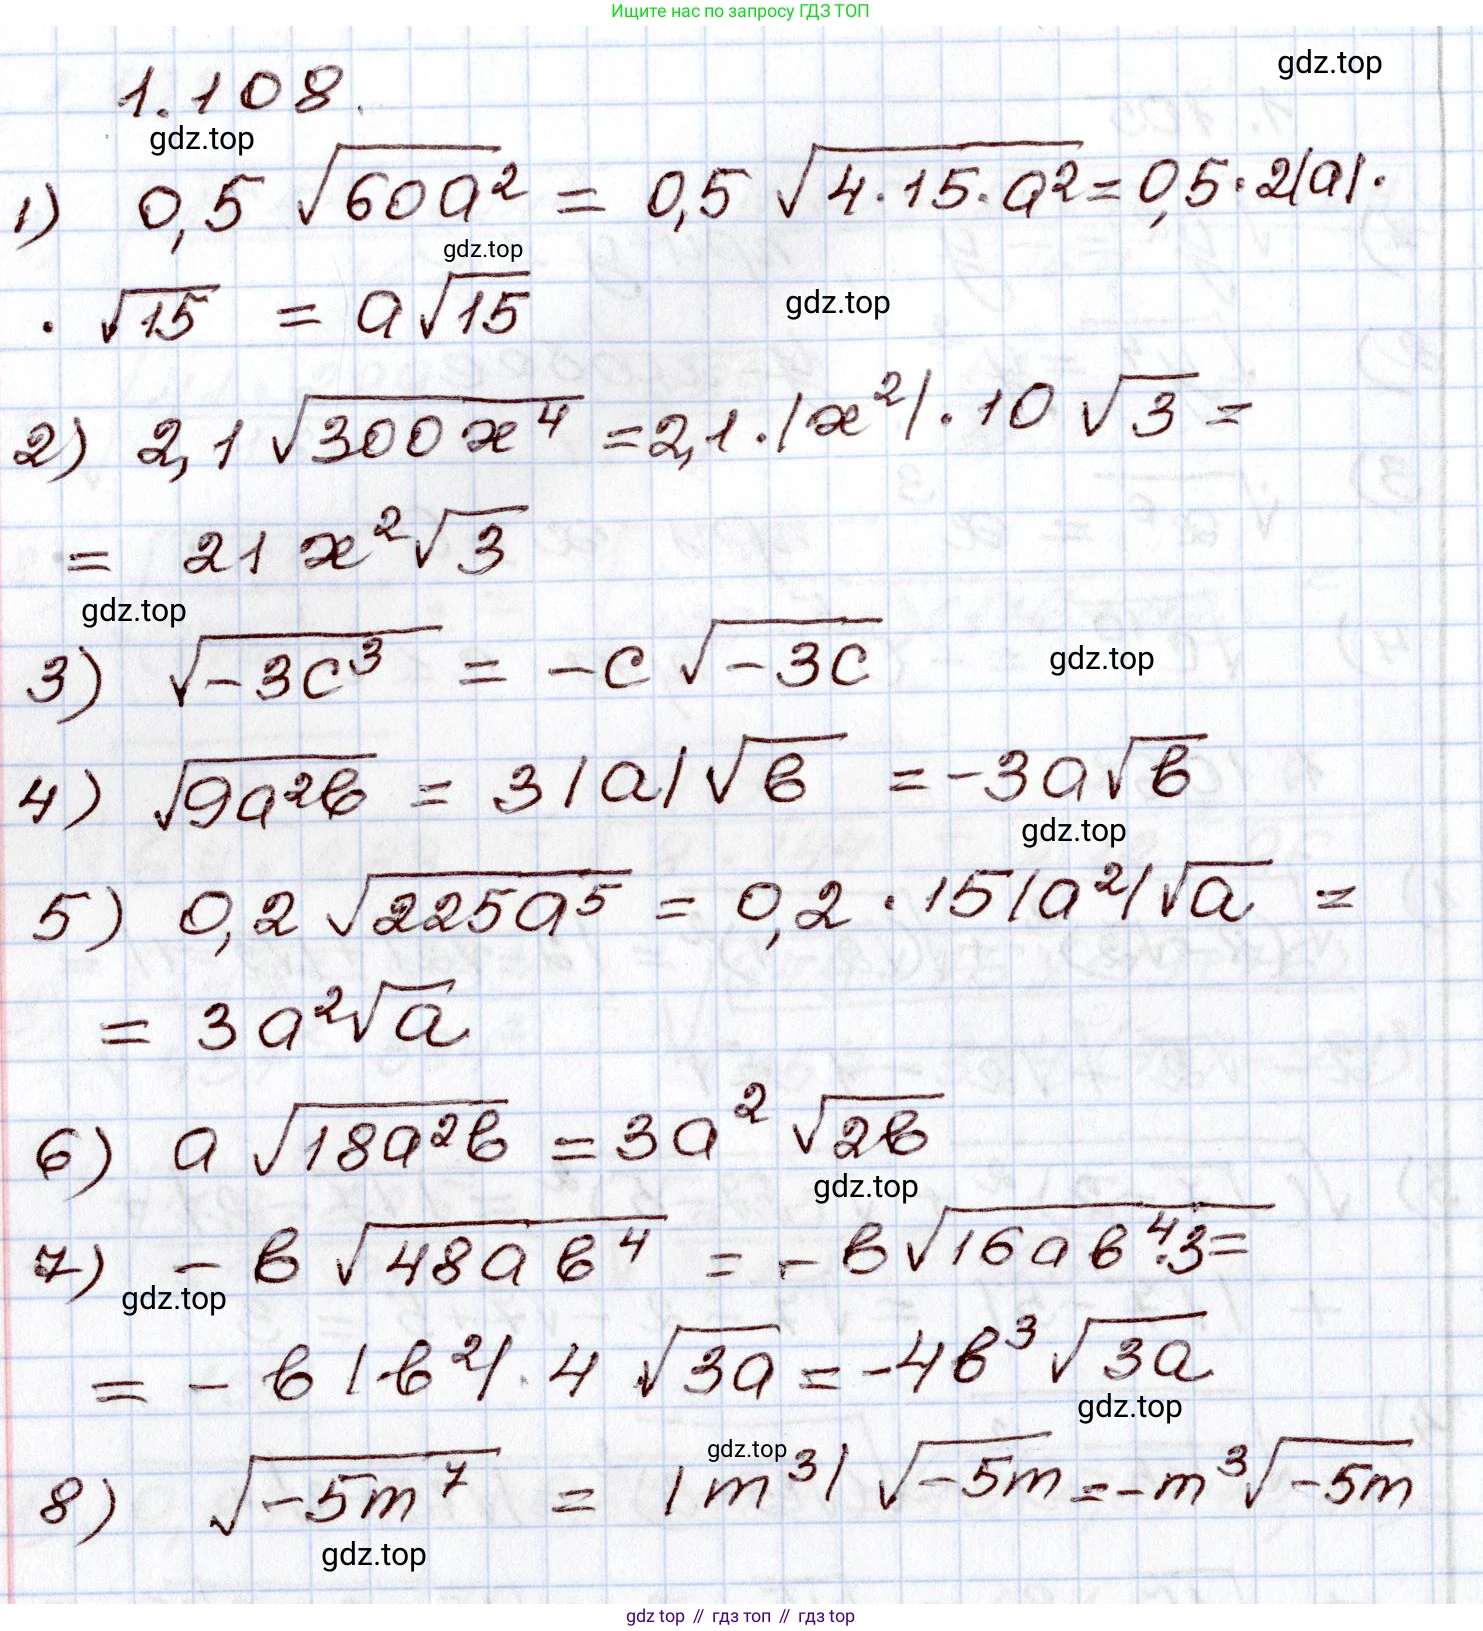 Ищите нас по запросу ГДЗ ТОП
gdz.top
1.108.
gdz.top
1) 0,5 √60a² = 0,5 √4·15·a² = 0,5·2|a|·
gdz.top
· √15 = a√15
gdz.top
2) 2,1 √300x⁴ = 2,1·|x²|·10 √3 =
= 21 x²√3
gdz.top
3) √-3c³ = -c √-3c
gdz.top
4) √9a²b = 3|a|√b = -3a√b
gdz.top
5) 0,2 √225a⁵ = 0,2·15|a²|√a =
= 3a²√a
6) a √18a²b = 3a² √2b
gdz.top
7) - b √48ab⁴ = - b√16ab⁴·3 =
gdz.top
= - b |b²|·4 √3a = -4b³ √3a
gdz.top
gdz.top
8) √-5m⁷ = |m³| √-5m = -m³√-5m
gdz.top
gdz top // гдз топ // gdz top